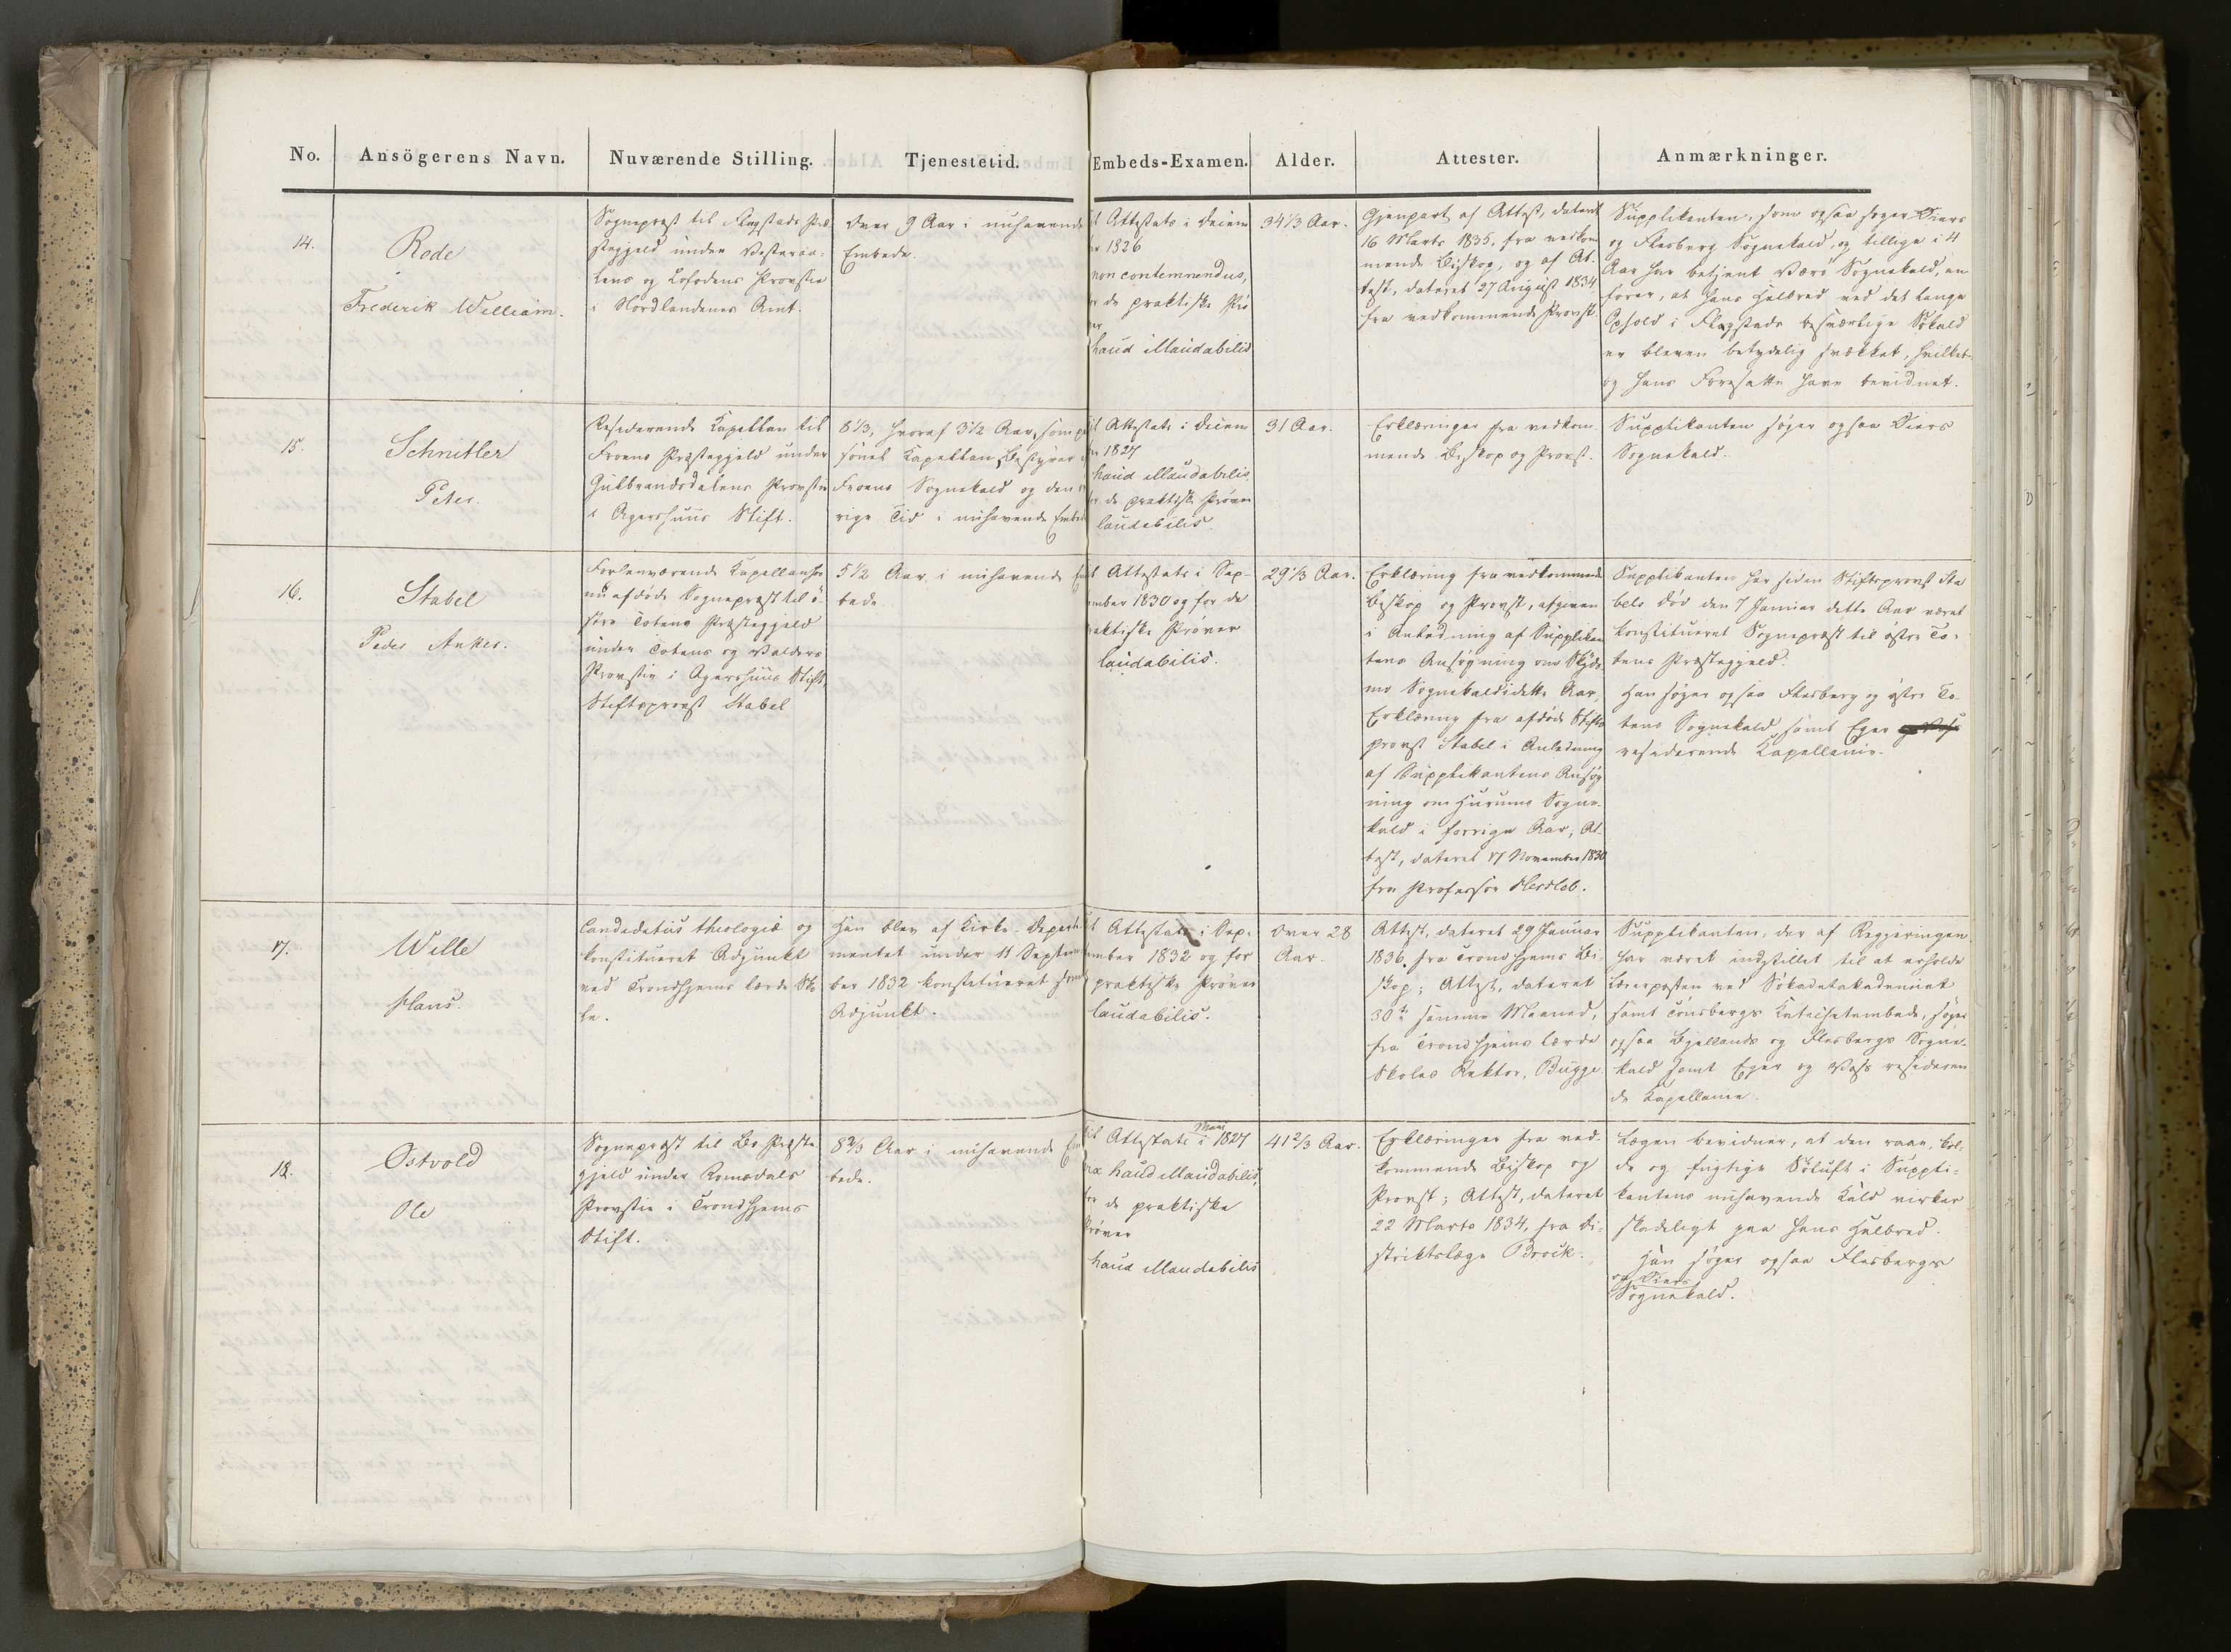 No.
Ansögerens Navn.
Nuværende Stilling.
Tjenestetid.
Embeds-Examen.
Alder.
Attester.
Anmærkninger.
14.
Rode
Frederik William.
Sognepræst til Flagstads Præ
stegjeld under Vesteraa-
lens og Lofodens Provstie
i Nordlandenes Amt.
Over 9 Aar i nuhavende
Embede.
Attestats i Decem
1826
non contemnendus,
de praktiske Prø
haud illaudabilis
34 1/3 Aar.
Gjenpart af Attest, dateret
16 Marts 1835, fra vedkom
mende Biskop, og af At-
test, dateret 27 August 1834
fra vedkommende Provst.
Supplikanten, som ogsaa søger Viers
og Flesberg Sognekald, og tillige i 4
Aar har betjent Værø Sognekald, an
fører, at hans Helbred ved det lange
Ophold i Flagstads besværlige Søkald
er bleven betydelig svækket, hvilket
og hans Foresatte have bevidnet.
15.
Schnitler
Peter.
Residerende Kapellan til
Froens Præstegjeld under
Gulbrandsdalens Provstie
i Agershuus Stift.
8 1/3, hvoraf 3 1/2 Aar, som p
sonel Kapellan, Bestyrer
Froens Sognekald og den
rige Tid i nuhavende Embede
Attestats i Decem
1827
haud illaudabilis,
de praktiske Prøver
laudabilis.
31 Aar.
Erklæringer fra vedkom-
mende Biskop og Provst.
Supplikanten søger ogsaa Viers
Sognekald.
16.
Stabel
Peder Anker.
Forhenværende Kapellan hos
nu afdøde Sognepræst til ø-
stre Totens Præstegjeld
under Totens og Valders
Provstie i Agershuus Stift,
Stiftsprovst Stabel
5 1/2 Aar i nuhavende
bede
Attestats i Sep-
ember 1830 og for de
aktiske Prøver
laudabilis.
29 1/3 Aar.
Erklæring fra vedkommende
Biskop og Provst, afgiven
i Anledning af Supplikan
tens Ansøgning om
Sognekald i dette Aar,
Erklæring fra afdøde Stifts
provst Stabel i Anledning
af Supplikantens Ansøg
ning om Hurums Sogne-
kald i forrige Aar, At-
test, dateret 17 November 1830
fra Professor Hersleb.
Supplikanten har siden Stiftsprovst Sta
bels Død den 7 Januar dette Aar været
konstitueret Sognepræst til østre To-
tens Præstegjeld.
Han søger ogsaa Flesberg og østre To-
tens Sognekald samt Eger
residerende Kapellanie.
17.
Wille
Hans.
Candidatus theologiæ og
konstitueret Adjunkt
ved Trondhjems lærde Sko
le.
Han blev af Kirke-Departe
mentet under 11 Septem
ber 1832 konstitueret som
Adjunkt.
Attestats i Sep-
ember 1832 og for
praktiske Prøver
laudabilis.
Over 28
Aar.
Attest, dateret 29 Januar
1836, fra Trondhjems Bi-
skop; Attest, dateret
30te samme Maaned,
fra Trondhjems lærde
Skoles Rektor, Bugge
Supplikanten, der af Regjeringen
har været indstillet til at erholde
Lærerposten ved Søkadetakademiet
samt Tønsbergs Katechetembede, søger
ogsaa Bjellands og Flesbergs Sogne-
kald samt Eger og Voss residéren
de Kapellanie.
18.
Östvold
Ole
Sognepræst til Bø Præste
gjeld under Romsdals
Provstie i Trondhjems
Stift.
8 2/3 Aar i nuhavende Em
bede.
Attestats i Mai 1827
haud illaudabilis,
for de praktiske
Prøver
haud illaudabilis
41 2/3 Aar.
Erklæringer fra ved-
kommende Biskop og
Provst; Attest, dateret
22 Marts 1834, fra Di-
striktslæge Brock.
Lægen bevidner, at den raae, kol-
de og fugtige Søluft i Suppli-
kantens nuhavende Kald virker
skadeligt paa hans Helbred.
Han søger ogsaa Flesbergs
og Viers
Sognekald.